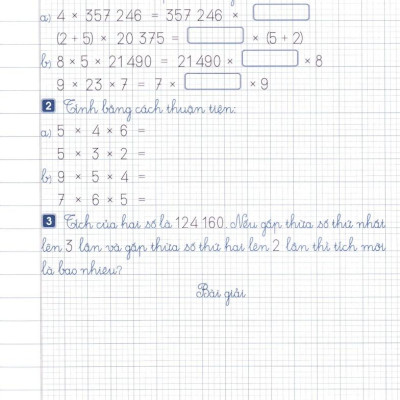 a) 4 × 357 246 = 357 246 ×
(2 + 5) × 20 375 = × (5 + 2)
b) 8 × 5 × 21 490 = 21 490 × × 8
9 × 23 × 7 = 7 × × 9
2 Tính bằng cách thuận tiện:
a) 5 × 4 × 6 =
5 × 3 × 2 =
b) 9 × 5 × 4 =
7 × 6 × 5 =
3 Tích của hai số là 124 160. Nếu gấp thừa số thứ nhất
lên 3 lần và gấp thừa số thứ hai lên 2 lần thì tích mới
là bao nhiêu?
Bài giải